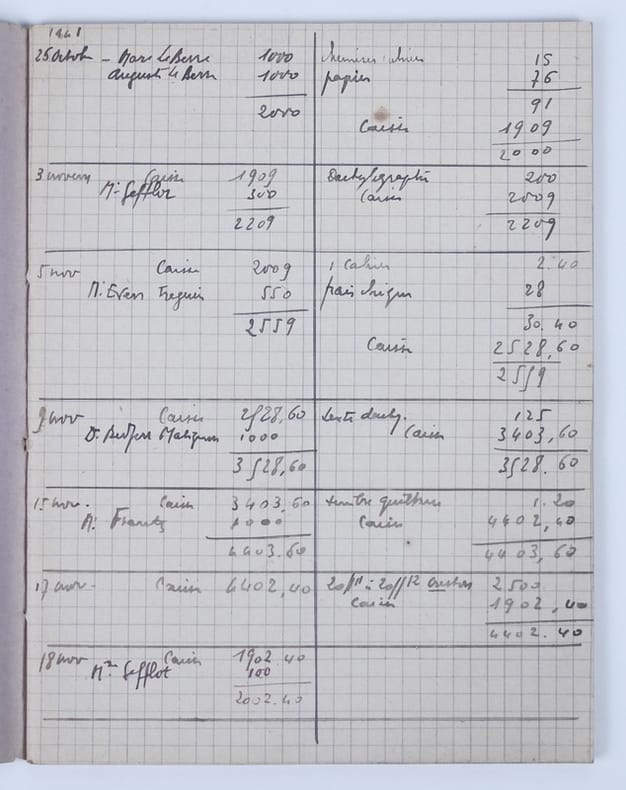 1941
25 Octob - Marc Le Berre 1000
Auguste Le Berre 1000
2000
chemises, cahiers 15
papier 76
91
Caisse 1909
2000
3 novem Caisse 1909
Mr Gefflot 300
2209
Dactylographie 200
Caisse 2009
2209
5 nov Caisse 2009
M. Even Treguier 550
2559
1 Cahier 2.40
frais 28
30.40
Caisse 2528,60
2559
9 nov Caisse 2528,60
D. Matignon 1000
3528,60
dacty. 125
Caisse 3403,60
3528.60
15 nov. Caisse 3403,60
1000
4403.60
timbre quittance 1.20
Caisse 4402,40
4403,60
17 nov - Caisse 4402,40
2500
Caisse 1902,40
4402.40
18 nov Caisse 1902.40
Mme Gefflot 100
2002.40